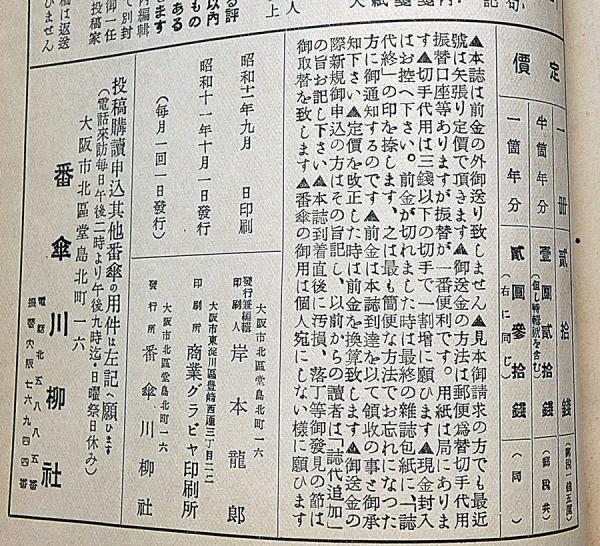 定價
一冊 貳拾錢 (郵稅一錢五厘)
半箇年分 壹圓貳拾錢 (但し特輯號を含む) (郵稅共)
一箇年分 貳圓參拾錢 (右に同じ) (同)
▲本誌は前金の外御送り致しません▲見本御請求の方でも最近
號は矢張り定價で頂きます▲御送金の方法は郵便爲替切手代用
振替口座等ありますが振替が一番便利です。用紙は局にありま
す▲切手代用は三錢以下の切手で一割增に願ひます▲現金封入
はお控へ下さい。前金が切れました時は最終の雜誌包紙に、「誌
代終」の印を捺します、之は最も簡便な方法でお忘れになつた
方に御通知するのです▲前金は本誌到達を以て領收の事と御承
知下さい▲定價を改正した時は前金を換算致します▲御送金の
際新規御申込の方はその旨記し、以前からの讀者は「誌代追加」
の旨お記し下さい▲本誌到着直後に汚損、落丁等御發見の節は
御取替を致します▲番傘の御用は個人宛にしない樣に願ひます
昭和十一年九月 日印刷
昭和十一年十月一日發行
(每月一回一日發行)
大阪市北區堂島北町一六
發行兼編輯印刷人 岸本龍郎
大阪市東淀川區豐崎西通三丁目二二
印刷所 商業グラビヤ印刷所
大阪市北區堂島北町一六
發行所 番傘川柳社
投稿購讀申込其他番傘の用件は左記へ願ひます
(電話來訪每日午後二時より午後九時迄・日曜祭日休み)
大阪市北區堂島北町一六
番傘川柳社
電話北五八八五番
振替大阪七六九四四番